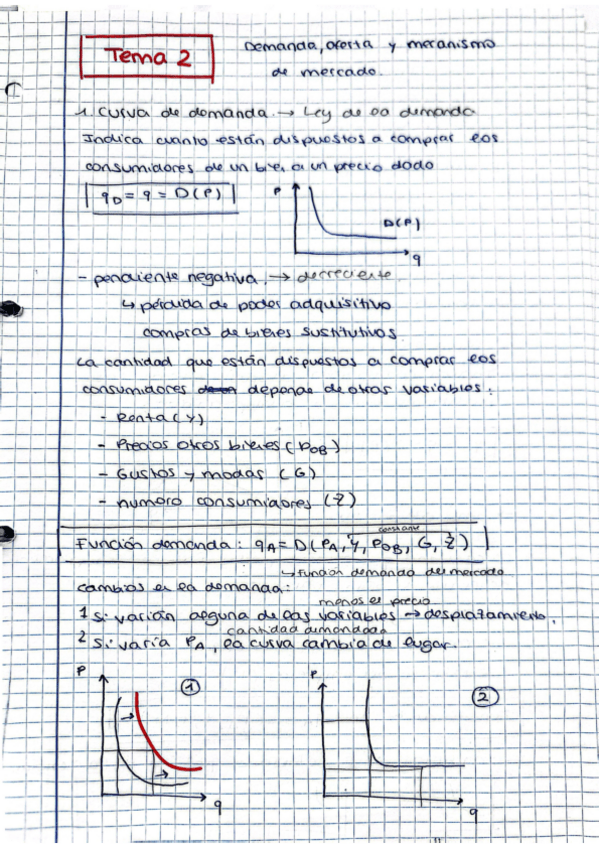 Tema 2
Demanda, oferta y mecanismo
de mercado.
1. Curva de demanda. → Ley de la demanda
Indica cuanto están dispuestos a comprar los
consumidores de un bien a un precio dado
qD = q = D(P)
P
D(P)
q
- pendiente negativa. → decreciente.
↳ pérdida de poder adquisitivo
compras de bienes sustitutivos
La cantidad que están dispuestos a comprar los
consumidores depende de otras variables:
- Renta (Y)
- Precios otros bienes (POB)
- Gustos y modas (G)
- numero consumidores (Z)
constante
Función demanda: qA = D(PA, Y, POB, G, Z)
↳ función demanda del mercado
cambios en la demanda:
menos el precio
1 si varían alguna de las variables → desplazamiento.
cantidad demandada
2 Si varía PA, la curva cambia de lugar.
P
1
q
P
2
q